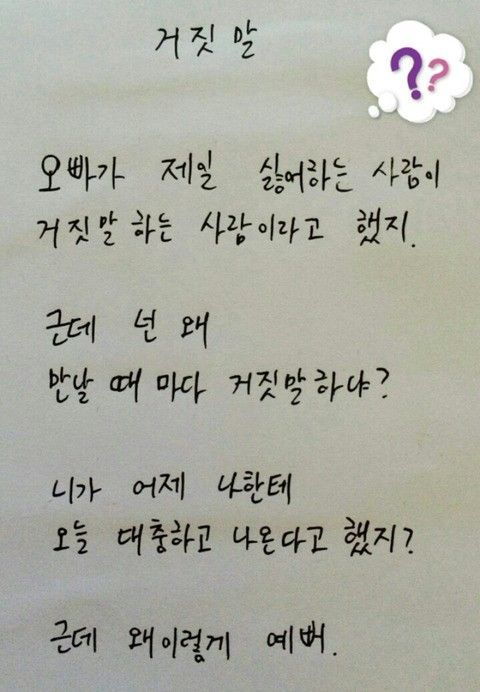 거짓말
??
오빠가 제일 싫어하는 사람이
거짓말 하는 사람이라고 했지.
근데 넌 왜
만날 때 마다 거짓말하냐?
니가 어제 나한테
오늘 대충하고 나온다고 했지?
근데 왜이렇게 예뻐.